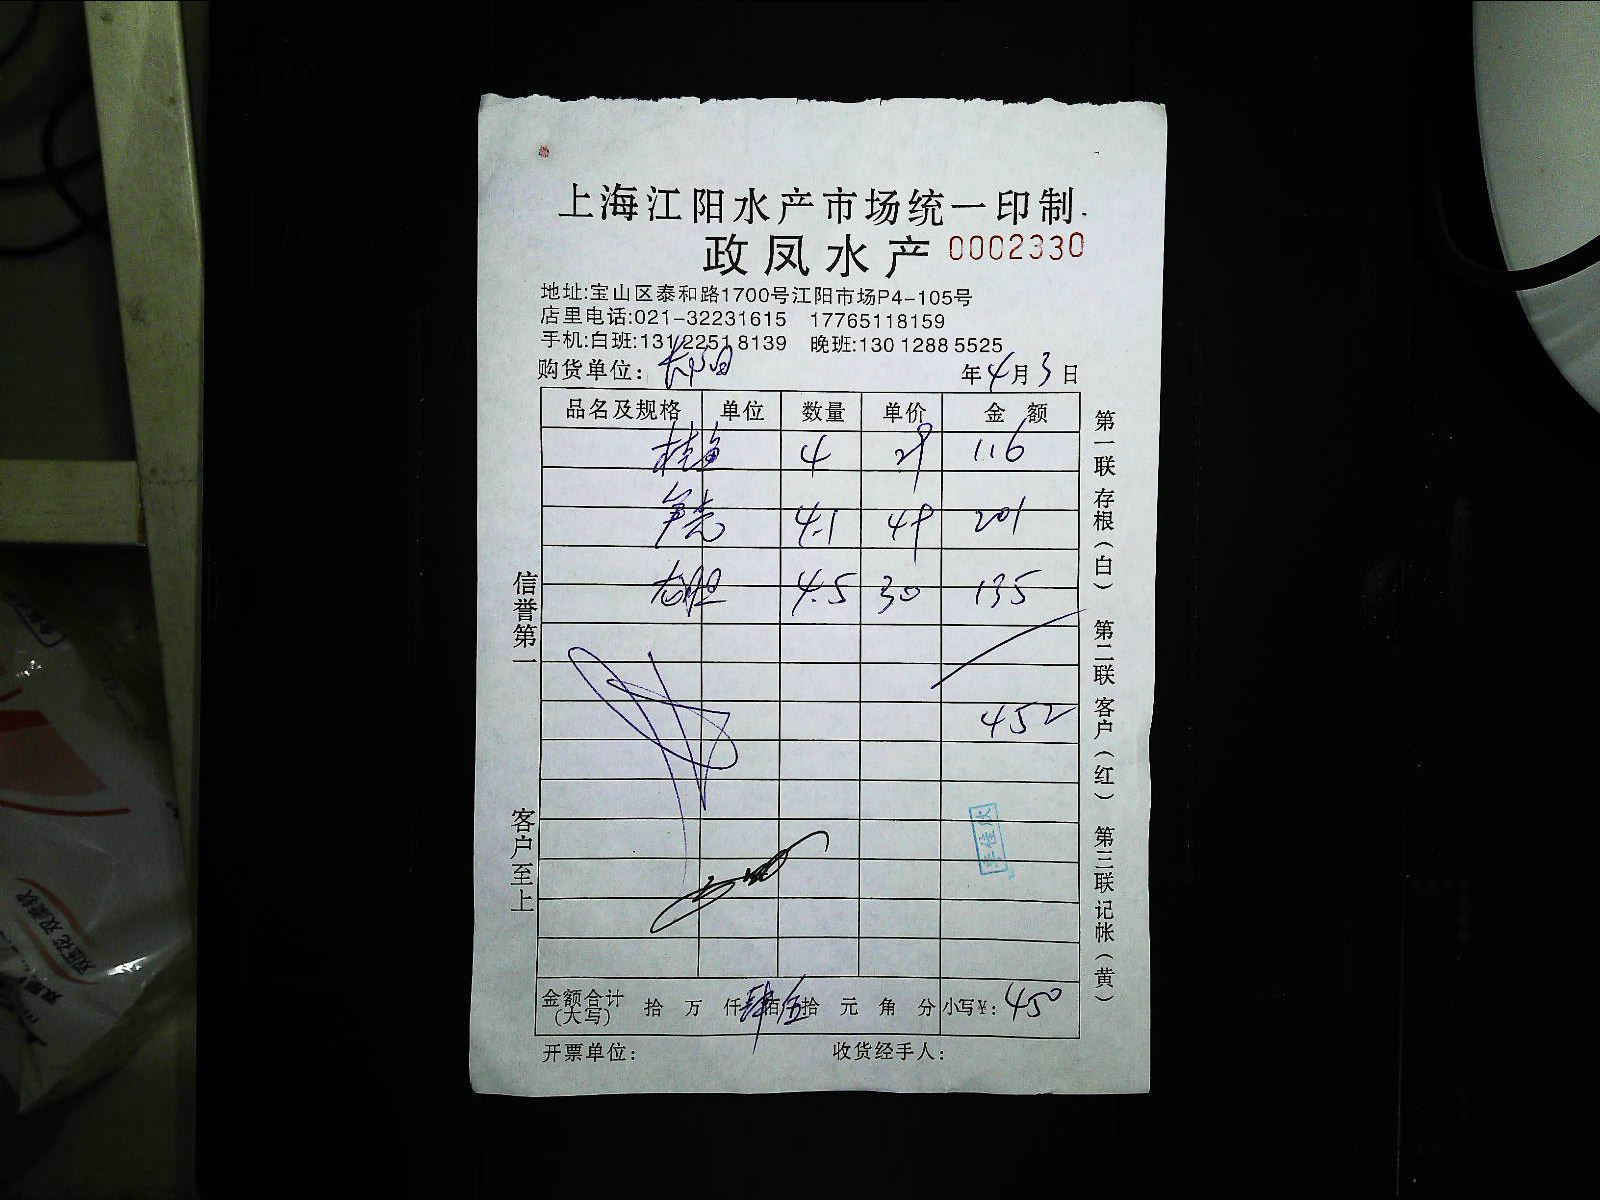 上海江阳水产市场统一印制
政凤水产 0002330
地址:宝山区泰和路1700号江阳市场P4-105号
店里电话:021-32231615 17765118159
手机:白班:13122518139 晚班:13012885525
购货单位: 年4月3日
品名及规格 单位 数量 单价 金额
桂鱼 4 29 116
4.1 49 201
4.5 30 135
452
金额合计(大写) 拾 万 仟 肆佰 伍拾 元 角 分 小写¥: 450
开票单位: 收货经手人:
信誉第一
客户至上
第一联存根(白) 第二联客户(红) 第三联记帐(黄)